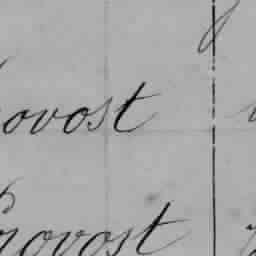 rovost
Provost